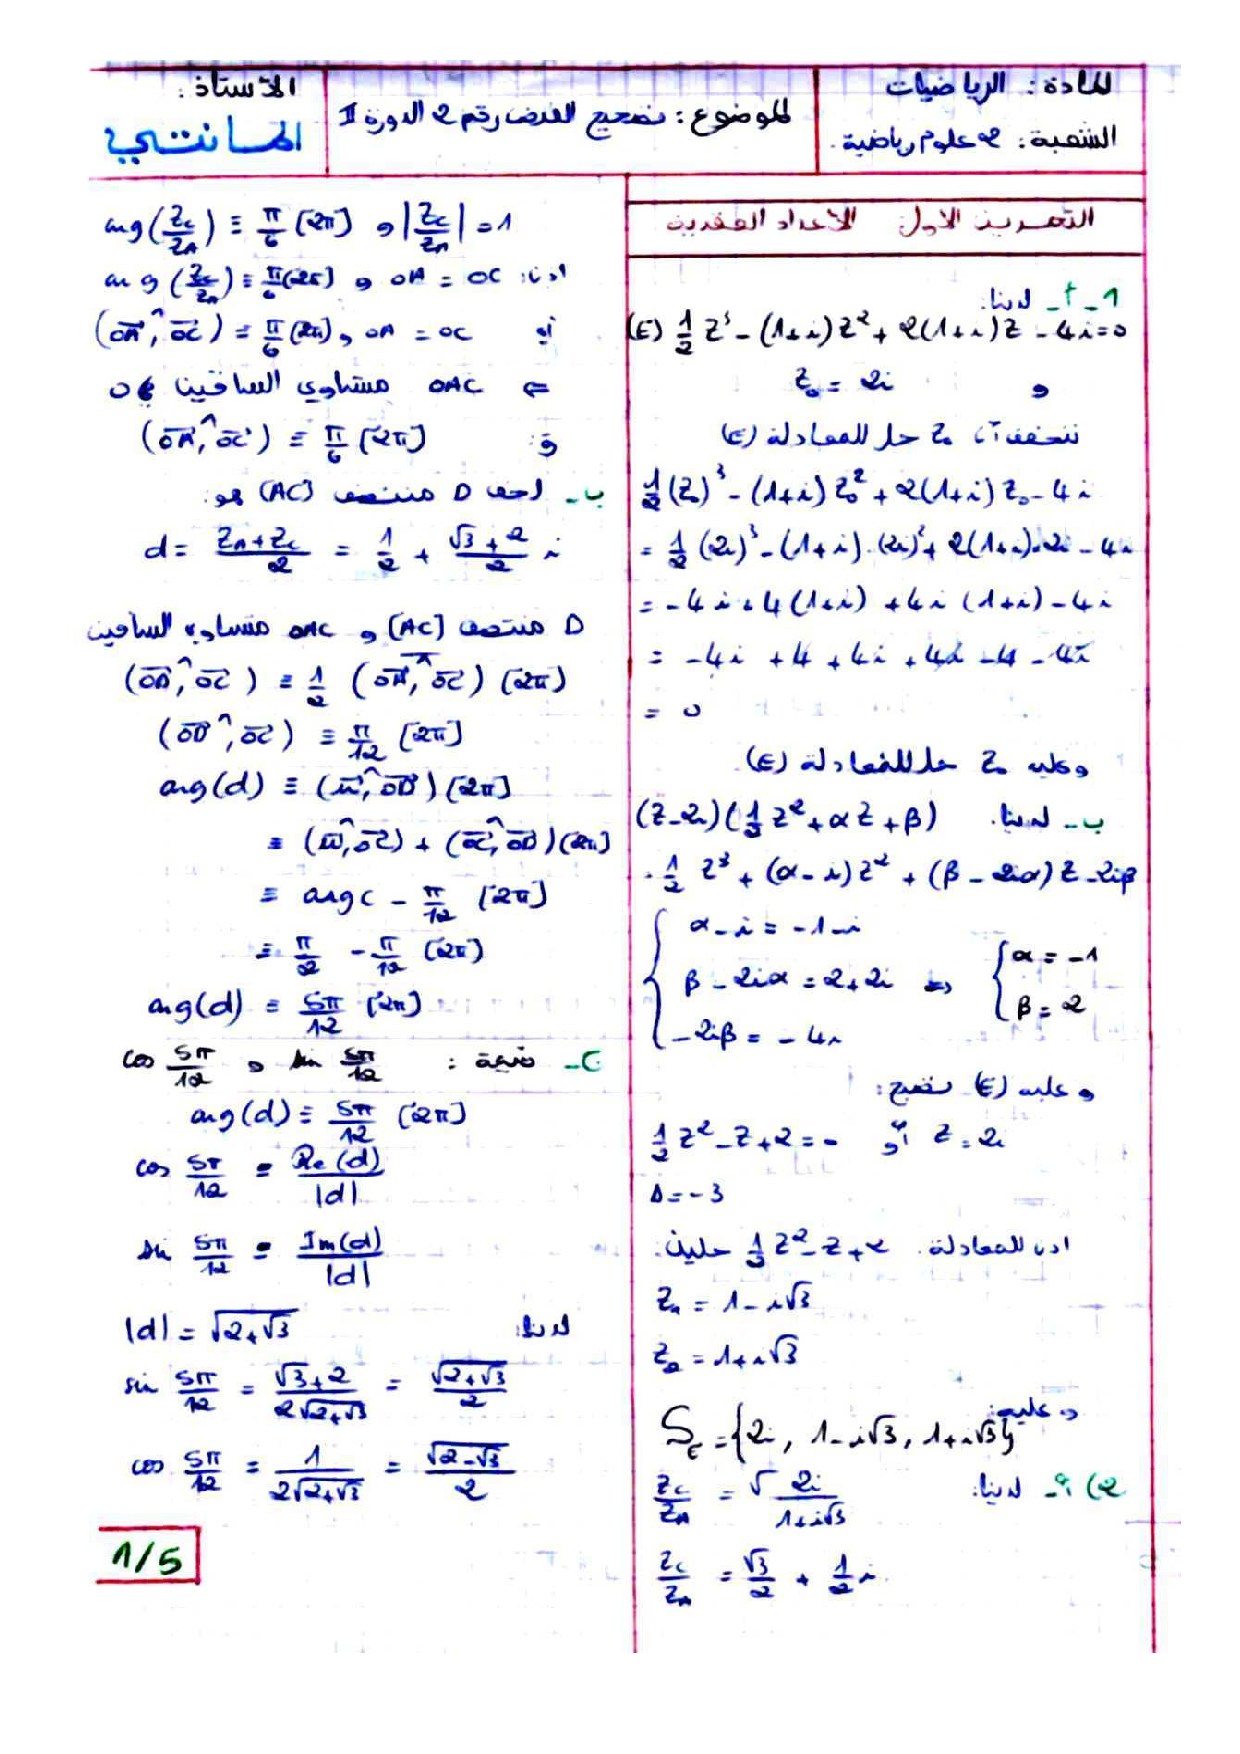 المادة: الرياضيات
الشعبة: 2 علوم رياضية.
الموضوع: تصحيح الفرض رقم 2 الدورة I
الأستاذ:
الهانتي
التمرين الاول: الأعداد العقدية
1_ أ_ لدينا:
(E) 1/2 z³ - (1+i)z² + 2(1+i)z - 4i = 0
و z₀ = 2i
نتحقق أن z₀ حل للمعادلة (E)
1/2 (z₀)³ - (1+i) z₀² + 2(1+i) z₀ - 4i
= 1/2 (2i)³ - (1+i).(2i)² + 2(1+i).2i - 4i
= -4i + 4(1+i) + 4i (1+i) - 4i
= -4i + 4 + 4i + 4i - 4 - 4i
= 0
وعليه z₀ حل للمعادلة (E).
ب_ لدينا: (z-2i)(1/2 z² + αz + β)
= 1/2 z³ + (α-i)z² + (β-2iα)z - 2iβ
{ α - i = -1-i
β - 2iα = 2+2i ⇔ { α = -1
β = 2
-2iβ = -4i
و عليه (E) تصبح:
z = 2i أو 1/2 z² - z + 2 = 0
Δ = -3
اذن للمعادلة 1/2 z² - z + 2 حلين:
z₁ = 1 - i√3
z₂ = 1 + i√3
و عليه:
S_E = {2i, 1-i√3, 1+i√3}
2) أ_ لدينا:
z_C/z_A = 2i/(1+i√3)
z_C/z_A = √3/2 + 1/2 i
arg(z_C/z_A) ≡ π/6 [2π] و |z_C/z_A| = 1
اذن: OA = OC و arg(z_C/z_A) ≡ π/6 [2π]
أي OA = OC و (OA, OC) ≡ π/6 [2π]
⇐ OAC متساوي الساقين في O
و: (OA, OC) ≡ π/6 [2π]
ب_ لحق D منتصف [AC] هو:
d = (z_A+z_C)/2 = 1/2 + (√3+2)/2 i
D منتصف [AC] و OAC متساوي الساقين
(OD, OC) ≡ 1/2 (OA, OC) [2π]
(OD, OC) ≡ π/12 [2π]
arg(d) ≡ (u, OD) [2π]
≡ (u, OC) + (OC, OD) [2π]
≡ arg c - π/12 [2π]
≡ π/2 - π/12 [2π]
arg(d) ≡ 5π/12 [2π]
ج_ قيمة: sin 5π/12 و cos 5π/12
arg(d) ≡ 5π/12 [2π]
cos 5π/12 = Re(d)/|d|
sin 5π/12 = Im(d)/|d|
لدينا: |d| = √(2+√3)
sin 5π/12 = (√3+2)/(2√(2+√3)) = √(2+√3)/2
cos 5π/12 = 1/(2√(2+√3)) = √(2-√3)/2
1/5